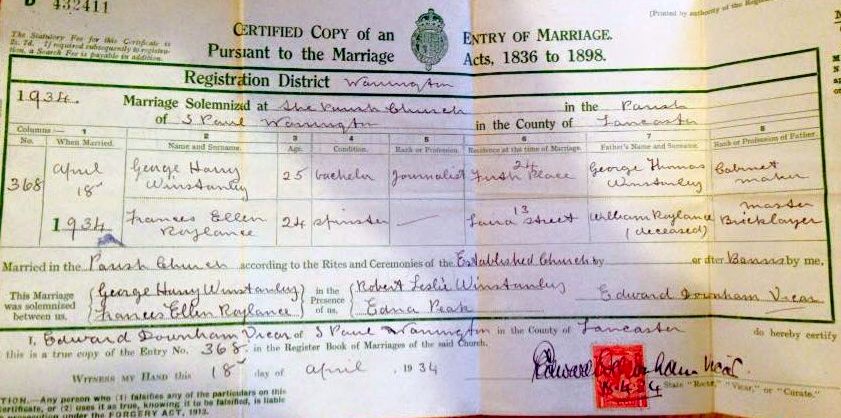 D 432411
[Printed by authority of the Regis
CERTIFIED COPY of an ENTRY OF MARRIAGE.
Pursuant to the Marriage Acts, 1836 to 1898.
The Statutory Fee for this Certificate is
2s. 7d. If required subsequently to registra-
tion, a Search Fee is payable in addition.
Registration District Warrington
1934. Marriage Solemnized at The Parish Church in the Parish
of S Paul Warrington in the County of Lancaster
Columns:— 1 2 3 4 5 6 7 8
No. When Married. Name and Surname. Age. Condition. Rank or Profession. Residence at the time of Marriage. Father's Name and Surname. Rank or Profession of Father.
368 April 18 1934 George Harry Winstanley 25 bachelor Journalist 24 Firth Place George Thomas Winstanley Cabinet maker
Frances Ellen Roylance 24 spinster — 13 Street William Roylance (deceased) master Bricklayer
Married in the Parish Church according to the Rites and Ceremonies of the Established Church by or after Banns by me,
This Marriage was solemnized between us, George Harry Winstanley Frances Ellen Roylance in the Presence of us, Robert Leslie Winstanley Edna Peak Edward Downham Vicar
I, Edward Downham Vicar of S Paul Warrington in the County of Lancaster do hereby certify
this is a true copy of the Entry No. 368 in the Register Book of Marriages of the said Church.
WITNESS MY HAND this 18 day of April 1934 Edward Downham Vicar
18.4.34
State "Rector," "Vicar," or "Curate."
TION.—Any person who (1) falsifies any of the particulars on this
certificate, or (2) uses it as true, knowing it to be falsified, is liable
to prosecution under the FORGERY ACT, 1913.